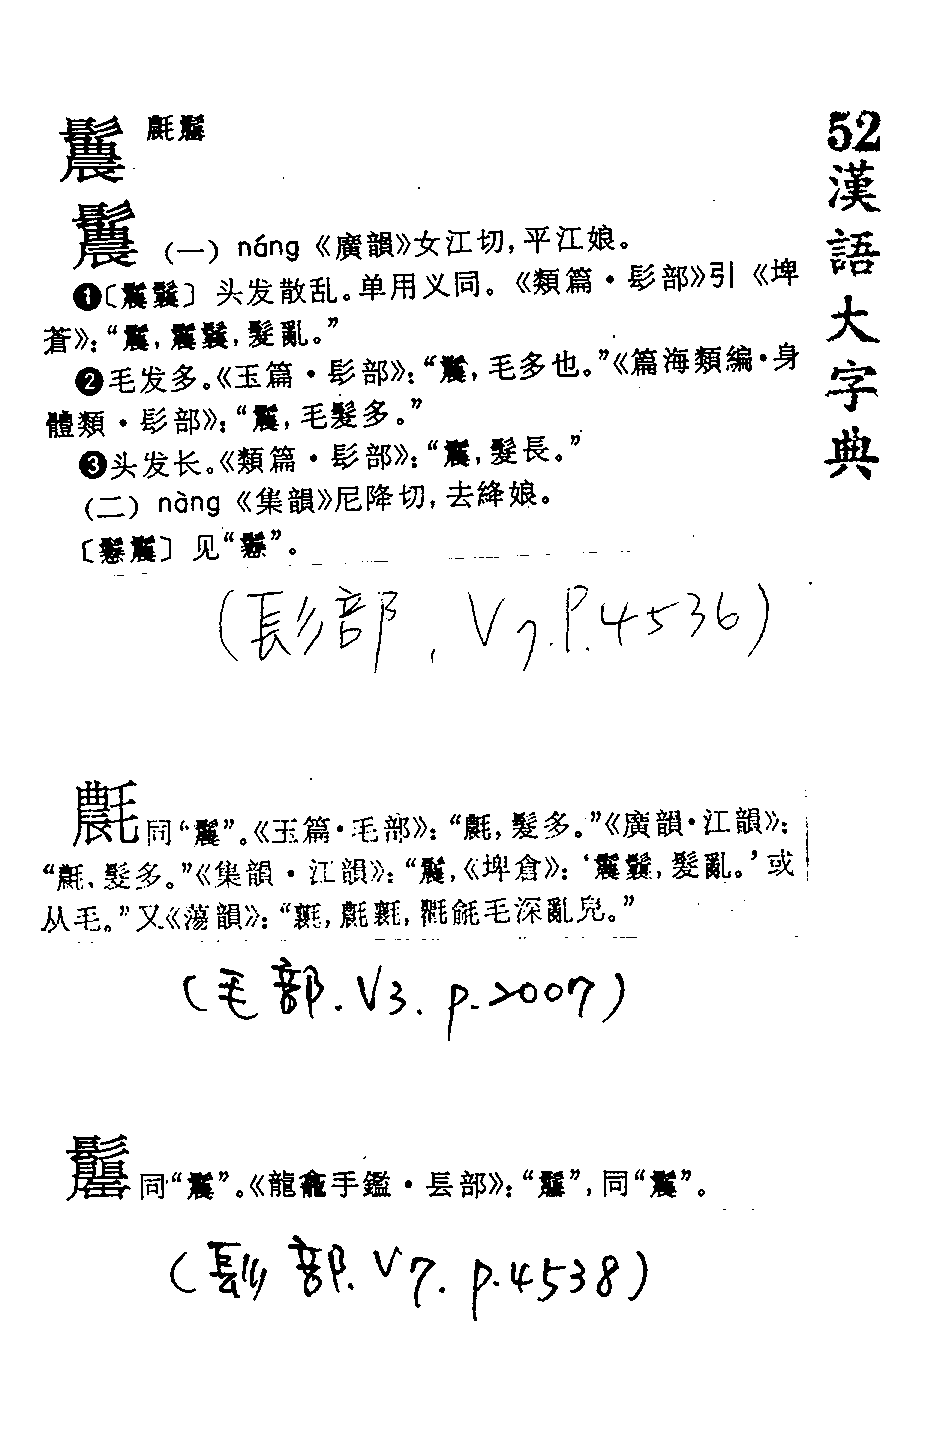 52漢語大字典
鬞 㲰
鬞(一)náng《廣韻》女江切,平江娘。
❶〔鬞鬤〕头发散乱。单用义同。《類篇·髟部》引《埤
蒼》:“鬞,鬞鬤,髮亂。”
❷毛发多。《玉篇·髟部》:“鬞,毛多也。”《篇海類編·身
體類·髟部》:“鬞,毛髮多。”
❸头发长。《類篇·髟部》:“鬞,髮長。”
(二)nàng《集韻》尼降切,去絳娘。
〔鬞〕见“”。
(髟部,V7.P.4536)
㲰同“鬞”。《玉篇·毛部》:“㲰,髮多。”《廣韻·江韻》:
“㲰,髮多。”《集韻·江韻》:“鬞,《埤倉》:‘鬞鬤,髮亂。’或
从毛。”又《蕩韻》:“毛深亂皃。”
(毛部.V3.p.2007)
同“鬞”。《龍龕手鑑·镸部》:“”,同“鬞”。
(髟部.V7.p.4538)